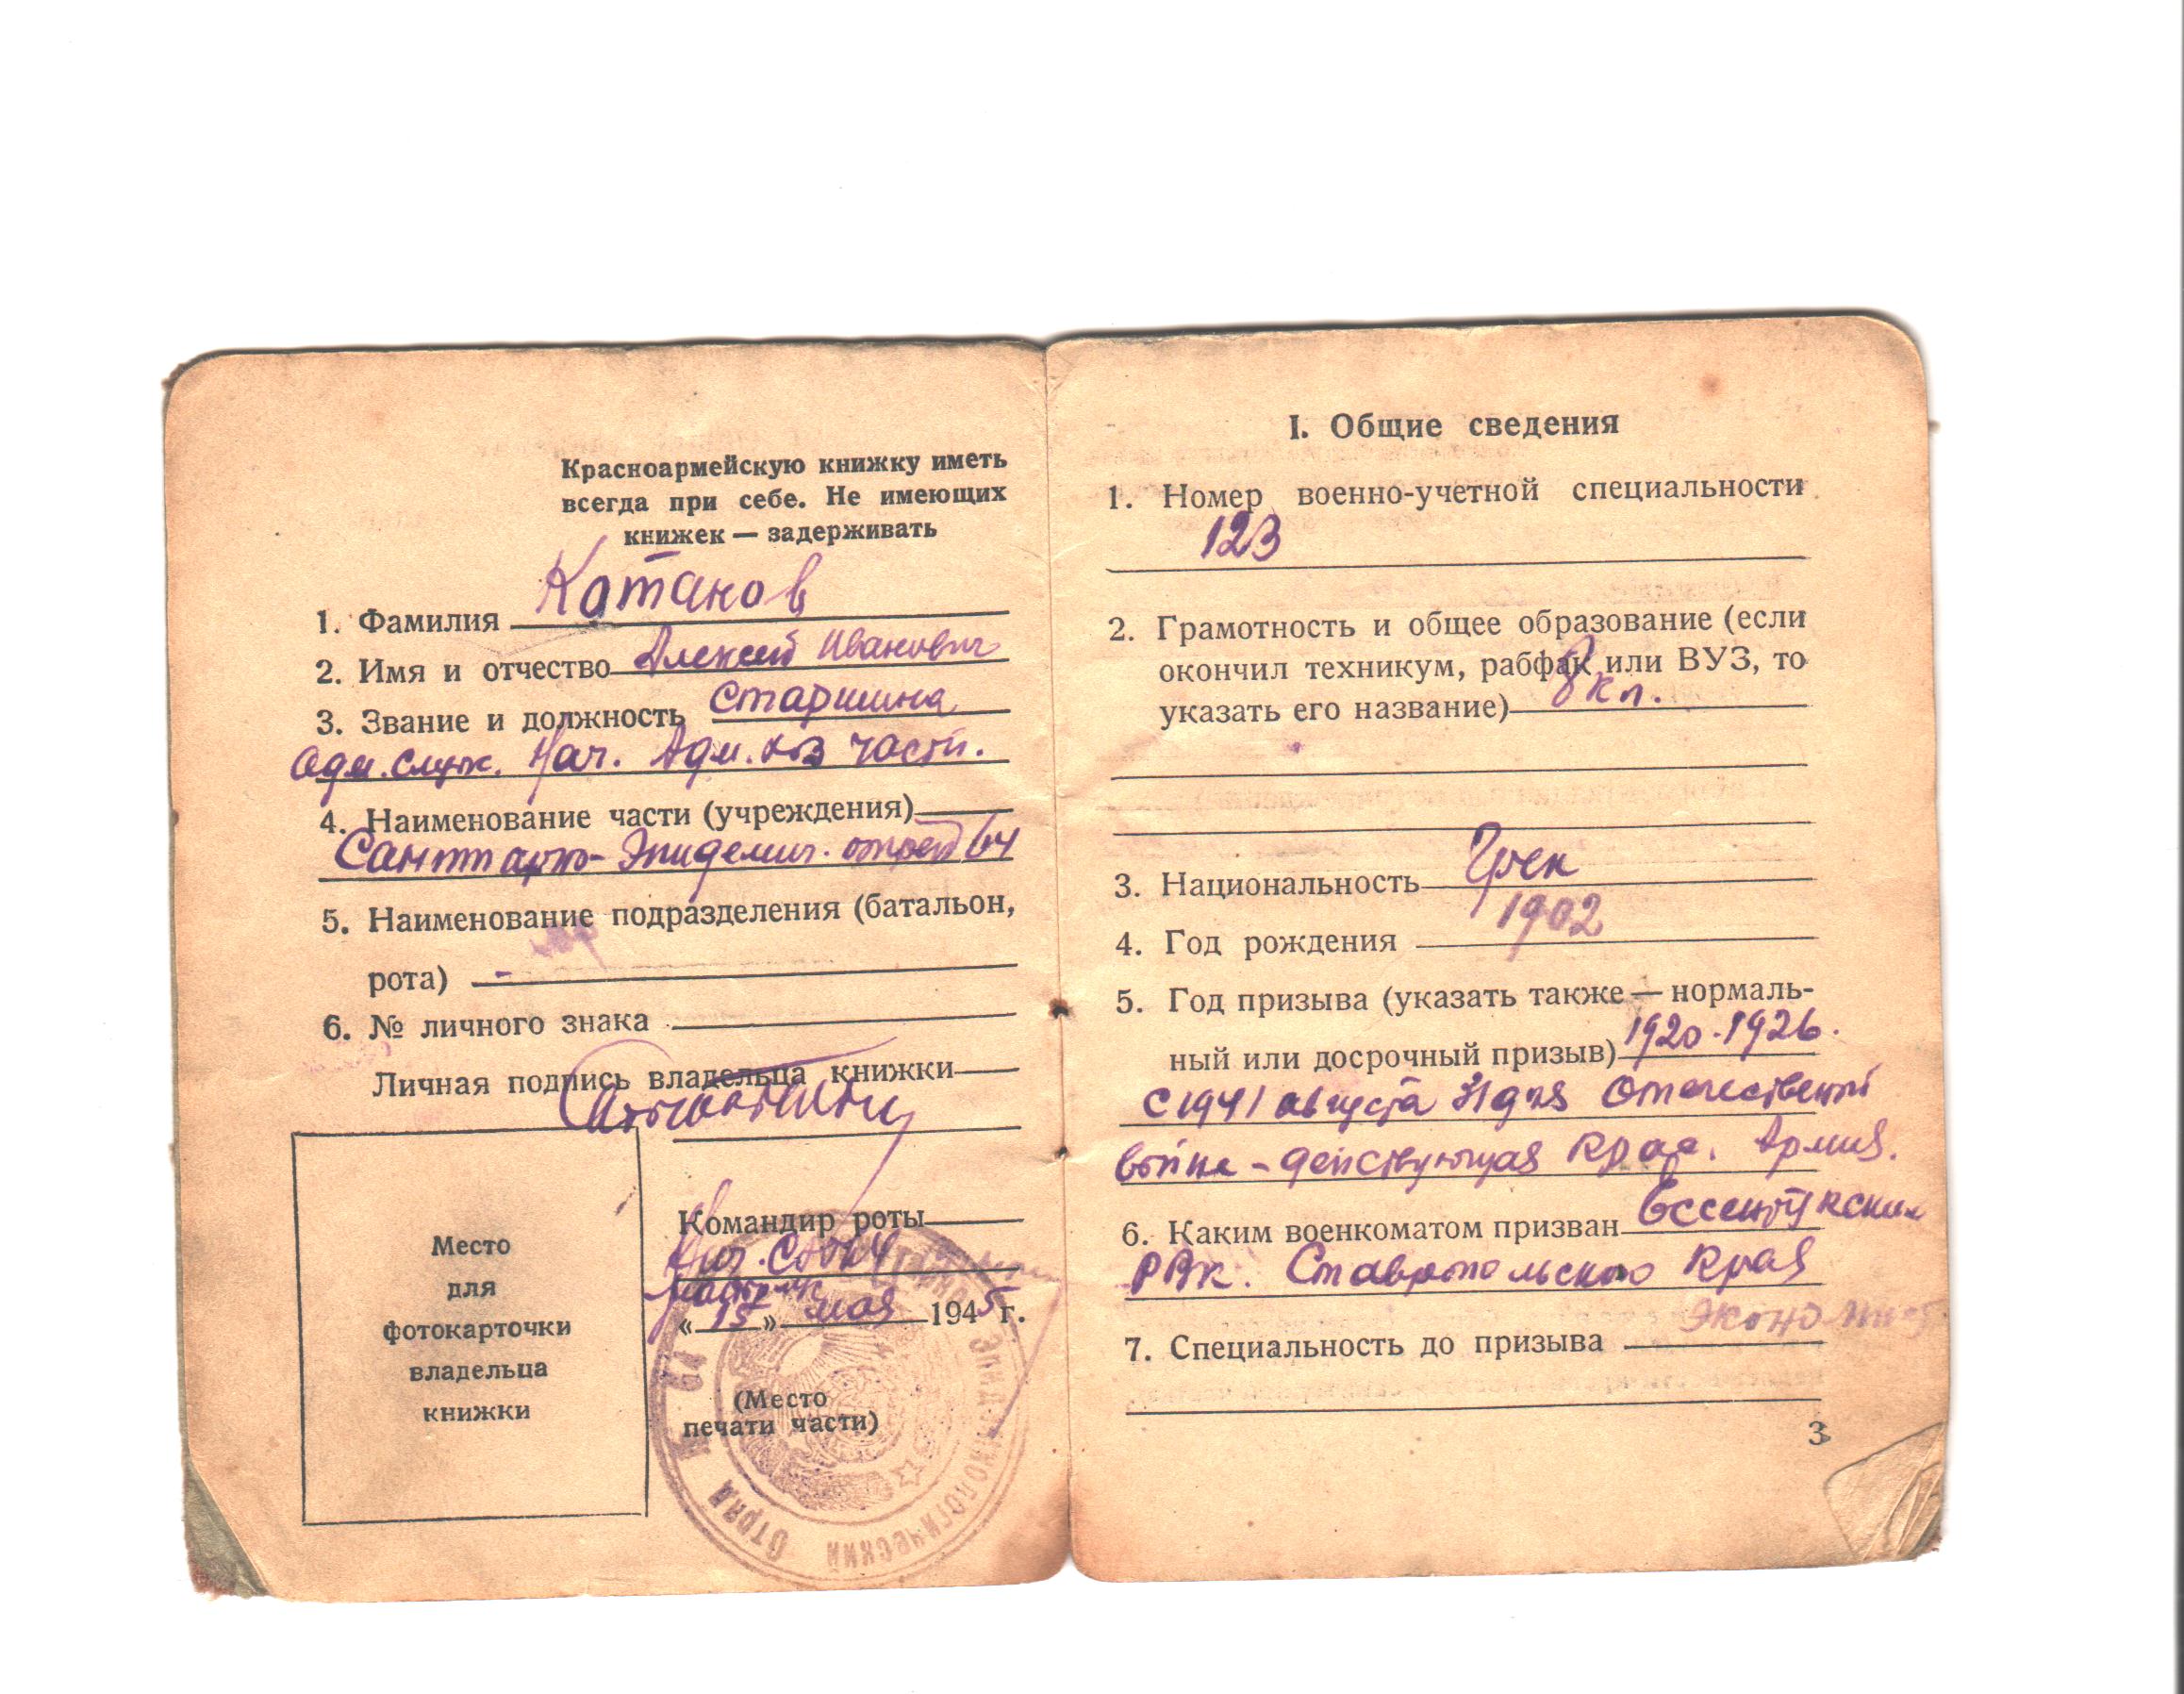 Красноармейскую книжку иметь
всегда при себе. Не имеющих
книжек — задерживать
1. Фамилия Катанов
2. Имя и отчество Алексей Иванович
3. Звание и должность Старшина
адм. служ. Нач. Адм. хоз части.
4. Наименование части (учреждения)
Санитарно-Эпидемич. отряд 64
5. Наименование подразделения (батальон,
рота) -
6. № личного знака
Личная подпись владельца книжки
Место
для
фотокарточки
владельца
книжки
Командир роты
Нач.
«15» мая 1945 г.
(Место
печати части)
Эпидемиологический Отряд № 64
I. Общие сведения
1. Номер военно-учетной специальности
123
2. Грамотность и общее образование (если
окончил техникум, рабфак или ВУЗ, то
указать его название) 8 кл.
3. Национальность Грек
4. Год рождения 1902
5. Год призыва (указать также — нормаль-
ный или досрочный призыв) 1920-1926.
С 1941 августа 31 дня Отечественной
войне - действующая Крас. Армия.
6. Каким военкоматом призван Ессентукским
РВК. Ставропольского Края
7. Специальность до призыва Экономист
3